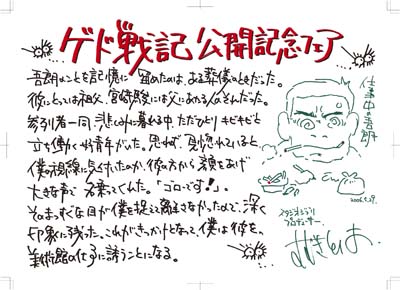 ゲド戦記 公開記念フェア
吾朗くんのことを記憶に留めたのは、ある葬儀のときだった。
彼にとっては祖父、宮崎駿には父にあたる人のそれだった。
参列者一同、悲しみに暮れる中、ただひとりキビキビと
立ち働く好青年がいた。思わず、見惚れていると
僕の視線に気付いたのか、彼の方から顔をあげ
大きな声で名乗ってくれた。「ゴローです!」。
そのまっすぐな目が僕を捉えて離さなかったので、深く
印象に残った。これがきっかけとなって、僕は彼を、
美術館の仕事に誘うことになる。
仕事中の吾朗
2006.5.29.
スタジオジブリ
プロデューサー
すずきとしお